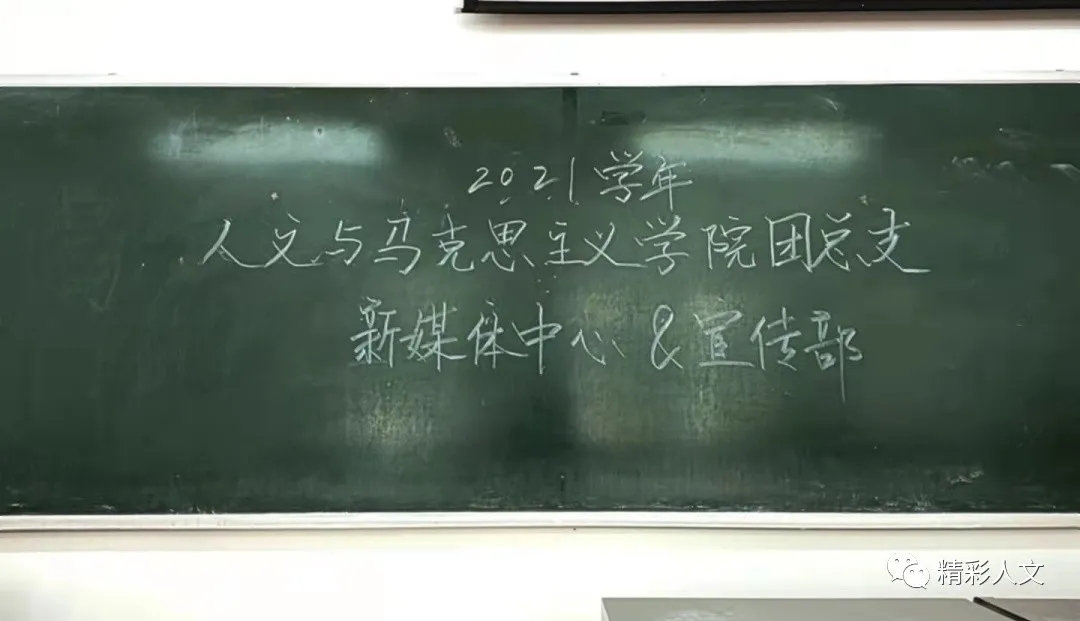 2021学年
人文与马克思主义学院团总支
新媒体中心&宣传部
精彩人文